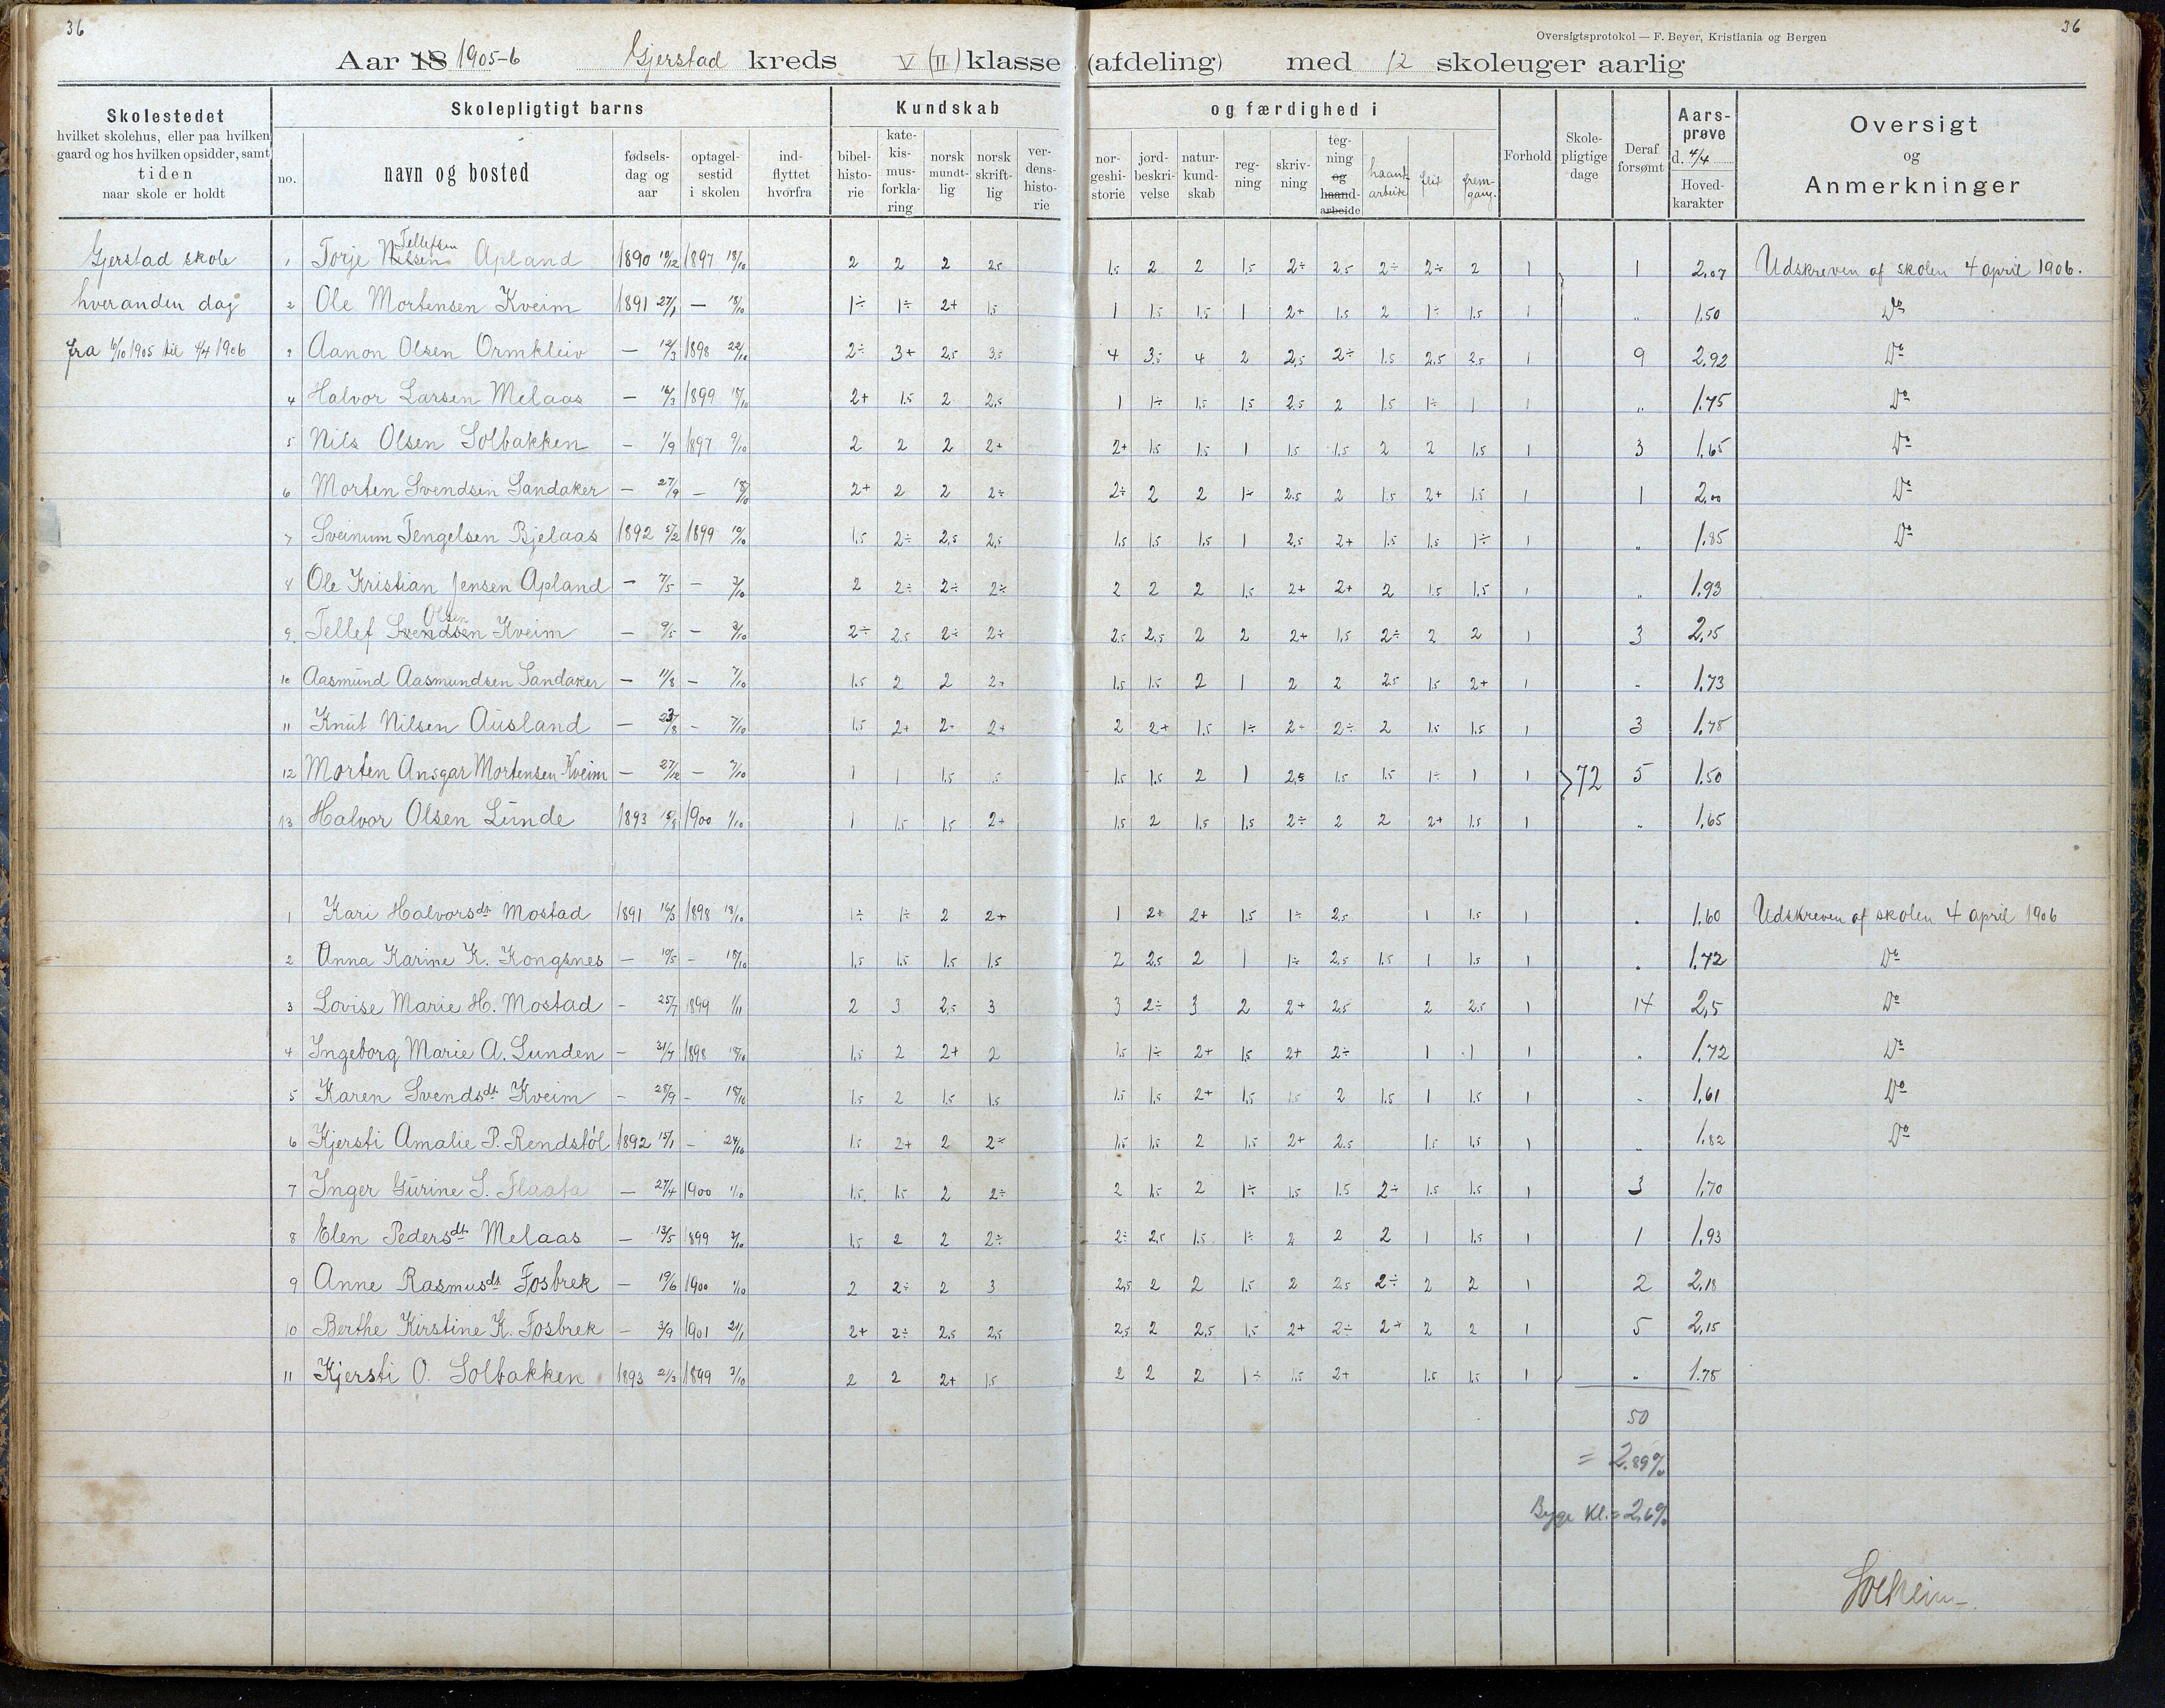 36
36
Oversigtsprotokol — F. Beyer, Kristiania og Bergen
Aar 18 1905-6 Gjerstad kreds V (II) klasse (afdeling) med 12 skoleuger aarlig
Skolestedet
hvilket skolehus, eller paa hvilken
gaard og hos hvilken opsidder, samt
tiden
naar skole er holdt
Skolepligtigt barns
no.
navn og bosted
fødsels-
dag og
aar
optagel-
sestid
i skolen
ind-
flyttet
hvorfra
Kundskab
bibel-
histo-
rie
kate-
kis-
mus-
forkla-
ring
norsk
mundt-
lig
norsk
skrift-
lig
ver-
dens-
histo-
rie
og færdighed i
nor-
geshi-
storie
jord-
beskri-
velse
natur-
kund-
skab
reg-
ning
skriv-
ning
teg-
ning
og
haand-
arbeide
haand-
arbeide
flid
frem-
gang.
Forhold
Skole-
pligtige
dage
Deraf
forsømt
Aars-
prøve
d. 4/4
Hoved-
karakter
Oversigt
og
Anmerkninger
Gjerstad skole
hveranden dag
fra 6/10 1905 til 4/4 1906
1 Torje Nilsen Tellefsen Apland 1890 19/12 1897 18/10 2 2 2 2,5 1,5 2 2 1,5 2÷ 2,5 2÷ 2÷ 2 1 1 2,07 Udskreven af skolen 4 april 1906.
2 Ole Mortensen Kveim 1891 27/1 — 18/10 1÷ 1÷ 2+ 1,5 1 1,5 1,5 1 2+ 1,5 2 1÷ 1,5 1 „ 1,50 Do
3 Aanon Olsen Ormkleiv — 12/3 1898 22/10 2÷ 3+ 2,5 3,5 4 3,5 4 2 2,5 2÷ 1,5 2,5 2,5 1 9 2,92 Do
4 Halvor Larsen Melaas — 16/3 1899 18/10 2+ 1,5 2 2,5 1 1÷ 1,5 1,5 2,5 2 1,5 1÷ 1 1 „ 1,75 Do
5 Nils Olsen Solbakken — 1/9 1897 9/10 2 2 2 2+ 2+ 1,5 1,5 1 1,5 1,5 2 2 1,5 1 3 1,65 Do
6 Morten Svendsen Sandaker — 27/9 — 18/10 2+ 2 2 2÷ 2÷ 2 2 1÷ 2,5 2 1,5 2+ 1,5 1 1 2,00 Do
7 Sveinum Tengelsen Bjelaas 1892 5/2 1899 19/10 1,5 2÷ 2,5 2,5 1,5 1,5 1,5 1 2,5 2+ 1,5 1,5 1÷ 1 „ 1,85 Do
8 Ole Kristian Jensen Apland — 7/5 — 3/10 2 2÷ 2÷ 2÷ 2 2 2 1,5 2+ 2+ 2 1,5 1,5 1 „ 1,93
9. Tellef Svendsen Olsen Kveim — 9/5 — 3/10 2÷ 2,5 2÷ 2÷ 2,5 2,5 2 2 2+ 1,5 2÷ 2 2 1 3 2,15
10 Aasmund Aasmundsen Sandaker — 11/8 — 7/10 1,5 2 2 2+ 1,5 1,5 2 1 2 2 2,5 1,5 2+ 1 „ 1,73
11 Knut Nilsen Ausland — 23/8 — 7/10 1,5 2+ 2÷ 2+ 2 2+ 1,5 1÷ 2÷ 2÷ 2 1,5 1,5 1 3 1,78
12 Morten Ansgar Mortensen Kveim — 27/12 — 7/10 1 1 1,5 1,5 1,5 1,5 2 1 2,5 1,5 1,5 1÷ 1 1 72 5 1,50
13 Halvor Olsen Lunde 1893 1900 1/10 1 1,5 1,5 2+ 1,5 2 1,5 1,5 2÷ 2 2 2+ 1,5 1 „ 1,65
1 Kari Halvorsdt. Mostad 1891 16/3 1898 18/10 1÷ 1÷ 2 2+ 1 2+ 2+ 1,5 1÷ 2,5 1 1,5 1 „ 1,60 Udskreven af skolen 4 april 1906
2 Anna Karine K. Kongsnes — 19/5 — 18/10 1,5 1,5 1,5 1,5 2 2,5 2 1 1÷ 2,5 1,5 1 1,5 1 „ 1,72 Do
3 Lovise Marie H. Mostad — 25/7 1899 1/11 2 3 2,5 3 3 2÷ 3 2 2+ 2,5 2 2,5 1 14 2,5 Do
4 Ingeborg Marie A. Lunden — 31/7 1898 18/10 1,5 2 2+ 2 1,5 1÷ 2+ 1,5 2+ 2÷ 1 1 1 „ 1,72 Do
5 Karen Svendsdt. Kveim — 28/9 — 18/10 1,5 2 1,5 1,5 1,5 1,5 2+ 1,5 1,5 2 1,5 1 1,5 1 „ 1,61 Do
6 Kjersti Amalie P. Rendstøl 1892 15/1 — 24/10 1,5 2+ 2 2÷ 1,5 1,5 2 1,5 2+ 2,5 1,5 1,5 1 „ 1,82 Do
7 Inger Gurine S. Flaata — 27/4 1900 1/10 1,5 1,5 2 2÷ 2 1,5 2 1÷ 1,5 1,5 2÷ 1,5 1,5 1 3 1,70
8 Elen Pedersdt. Melaas — 13/5 1899 3/10 1,5 2 2 2÷ 2÷ 2,5 1,5 1÷ 2 2 2 1 1,5 1 1 1,93
9 Anne Rasmusdt. Fosbrek — 19/6 1900 1/10 2 2÷ 2 3 2,5 2 2 1,5 2 2,5 2÷ 2 2 1 2 2,18
10 Berthe Kirstine K. Fosbrek — 3/9 1901 21/1 2+ 2÷ 2,5 2,5 2,5 2 2,5 1,5 2+ 2÷ 2+ 2 2 1 5 2,15
11 Kjersti O. Solbakken 1893 21/3 1899 3/10 2 2 2+ 1,5 2 2 2 1÷ 1,5 2+ 1,5 1,5 1 „ 1,78
50
= 2.89%
Kl. = 2,6%
Solheim